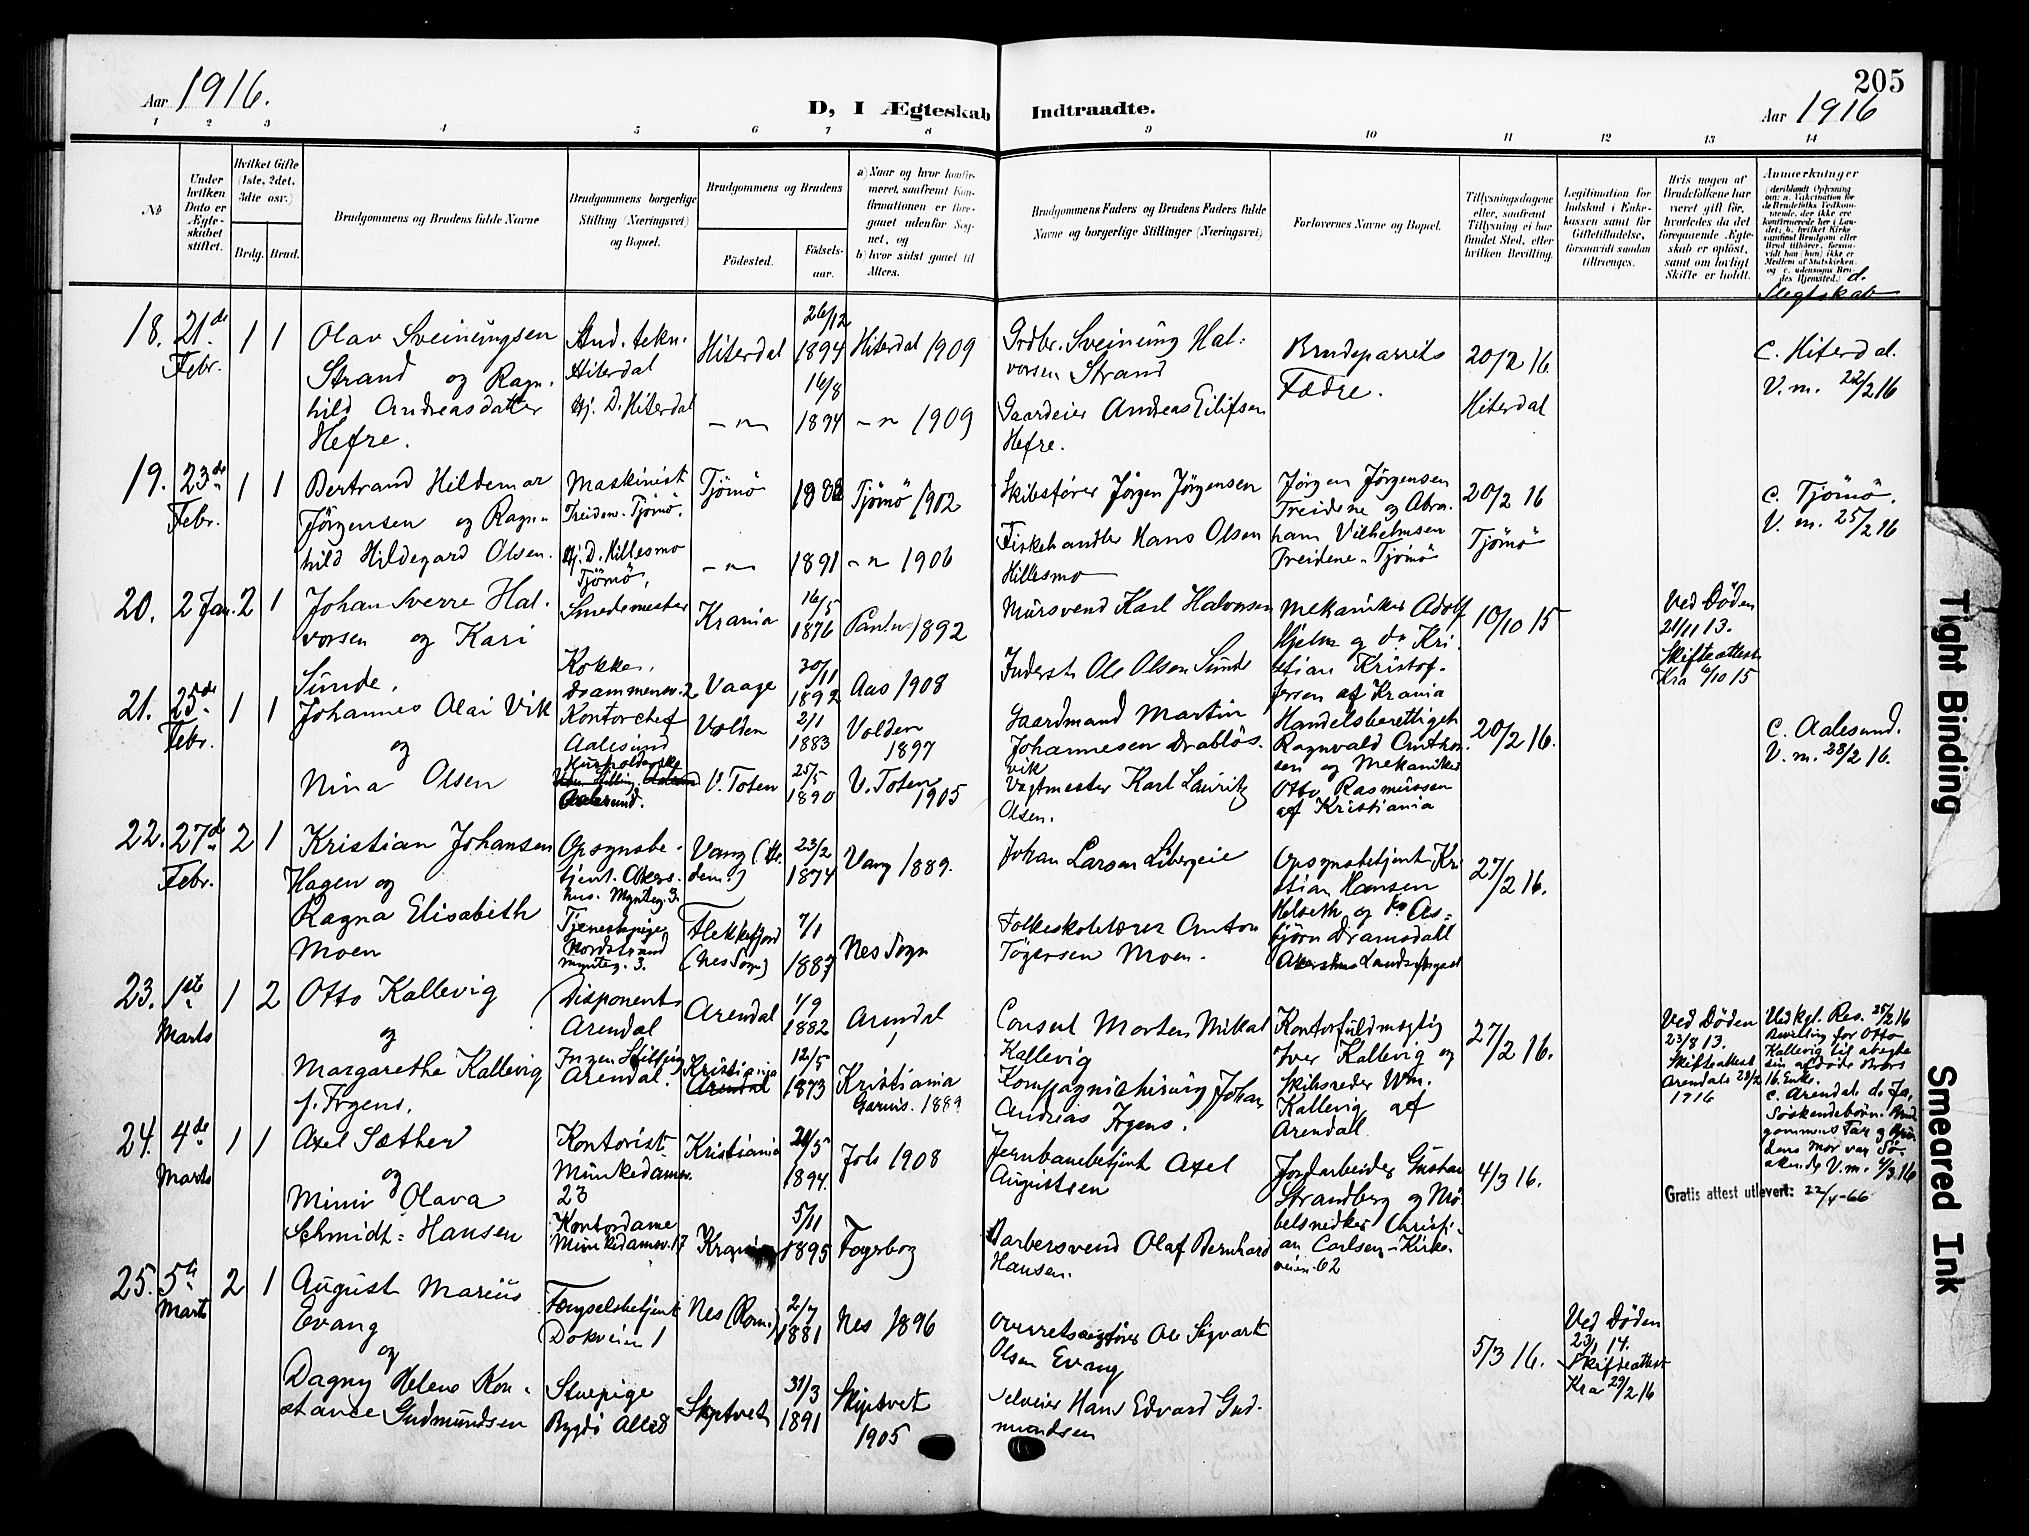 205
Aar 1916.
D, I Ægteskab Indtraadte.
Aar 1916
1 2 3 4 5 6 7 8 9 10 11 12 13 14
No
Under hvilken Dato er Ægteskabet stiftet.
Hvilket Gifte (1ste, 2det, 3die osv.)
Brdg. Brud.
Brudgommens og Brudens fulde Navne
Brudgommens borgerlige Stilling (Næringsvei) og Bopæl.
Brudgommens og Brudens
Fødested. Fødsels-aar.
a) Naar og hvor konfirmeret, saafremt Konfirmationen er foregaaet udenfor Sognet, og
b) hvor sidst gaaet til Alters.
Brudgommens Faders og Brudens Faders fulde Navne og borgerlige Stillinger (Næringsvei)
Forlovernes Navne og Bopæl.
Tillysningsdagene eller, saafremt Tillysning ei har fundet Sted, efter hvilken Bevilling.
Legitimation for Indskud i Enkekassen samt for Giftetilladelse, forsaavidt saadan tiltrænges.
Hvis nogen af Brudefolkene har været gift før, hvorledes da det foregaaende Ægteskab er opløst, samt om lovligt Skifte er holdt.
Anmærkninger
d. Slegtskab
18. 21de Febr. 1 1
Olav Sveinungsen
Strand og Ragn-
hild Andreasdatter
Hefre.
Stud. tekn.
Hiterdal
Hj. D. Hiterdal
Hiterdal
—"—
26/12 1894
16/8 1894
Hiterdal 1909
—"— 1909
Grdbr. Sveinung Hal-
vorsen Strand
Gaardeier Andreas Eilifsen
Hefre.
Brudeparrets
Fædre.
20/2 16.
Hiterdal
C. Hiterdal.
V. m. 22/2 16
19. 23de Febr. 1 1
Bertrand Hildemar
Jørgensen og Ragn-
hild Hildegard Olsen.
Maskinist
Treidene. Tjömö.
Hj. D. Hillesmo
Tjömö.
Tjömö
—"—
1882
1891
Tjömö 1902
—"— 1906
Skibsfører Jörgen Jörgensen
Fiskehandler Hans Olsen
Hillesmo
Jörgen Jörgensen
Treidene og Abra-
ham Vilhelmsen
Treidene - Tjömö
20/2 16
Tjömö
C. Tjömö.
V. m. 25/2 16
20. 2 Jan. 2 1
Johan Sverre Hal-
vorsen og Kari
Sunde.
Smedmester
Kokke.
Drammensv. 2
Krania
Vaage
16/5 1876
30/11 1892
1892
Aas 1908
Mursvend Karl Halvorsen
Inderst Ole Olsen Sunde
Mekaniker Adolf
Hjelm og do Kri-
stian Kristof-
fersen af Krania
10/10 15
Ved Døden
21/11 13.
Skifteattest
Kra 6/10 15
21. 25de Febr. 1 1
Johannes Olai Vik
og
Nina Olsen
Kontorchef
Aalesund
Husholderske
Aalesund.
Volden
V. Toten
2/1 1883
25/5 1890
Volden
1897
V. Toten
1905
Gaardmand Martin
Johannesen Drabløs-
vik
Vagtmester Karl Lauritz
Olsen.
Handelsberettiget
Ragnvald Arnthor-
sen og Mekaniker
Otto Rasmussen
af Kristiania
20/2 16.
C. Aalesund.
V. m. 28/2 16.
22. 27de Febr. 2 1
Kristian Johansen
Hagen og
Ragna Elisabeth
Moen
Opsynsbe-
tjent. Akers-
hus. Myntg. 3.
Tjenestepige
Nordstrand
Myntg. 3.
Vang (He-
dem.)
Flekkefjord
(Nes Sogn)
23/2 1874
7/1 1887
Vang 1889.
Nes Sogn
Johan Larsen Libergeie
Folkeskolelærer Anton
Tögersen Moen.
Opsynsbetjent Kri-
stian Hansen
Helseth og Ko As-
björn Dramsdall
Akershus Landsfængsel
27/2 16.
23. 1ste Marts 1 2
Otto Kallevig
og
Margarethe Kallevig
f. Irgens.
Disponent
Arendal
Ingen Stilling
Arendal.
Arendal
Kristiania
Arendal
1/9 1882
12/5 1873
Arendal
Kristiania
Garnis. 1889
Consul Morten Mikal
Kallevig
Kompagnichirurg Johan
Andreas Irgens.
Kontorfuldmægtig
Iver Kallevig og
Skibsreder Wm.
Kallevig af
Arendal
27/2 16.
Ved Døden
23/8 13.
Skifteattest
Arendals 28/2
1916
Ved kgl. Res. 25/2 16
Bevilling for Otto
Kallevig til at egte
sin afdøde Brors
Enke.
C. Arendal. d. Ja,
Söskendebörn. Brud-
gommens Far og Bru-
dens Mor var Sø-
skende V. m. 4/3 16
24. 4de Marts 1 1
Axel Sæther
og
Mimi Olava
Schmidt-Hansen
Kontorist
Munkedamsv.
23
Kontordame
Munkedamsv. 17
Kristiania
Krania
21/5 1894.
5/11 1895
Joh 1908
Fagerborg
Jernbanebetjent Axel
Augustsen
Barbersvend Olaf Bernhard
Hansen.
Jordarbeider Gustav
Strandberg og Mö-
belsnedker Christi-
an Carlsen - Kirke-
veien 62
4/3 16.
Gratis attest utlevert: 22/4-66
25. 5te Marts 2 1
August Marius
Evang
og
Dagny Helene Kon-
stance Gudmundsen
Fængselsbetjent
Dokveien 1
Stuepige
Bygdö Allé 8
Nes (Rom.)
Skiptvet
2/7 1881
31/3 1891
Nes 1896
Skiptvet
1905
Overretssagfører Ole Sigvart
Olsen Evang
Selveier Hans Edvard Gud-
mundsen
5/3 16.
Ved Døden
23/1 14.
Skifteattest
Kra 29/2 16
Tight Binding
Smeared Ink